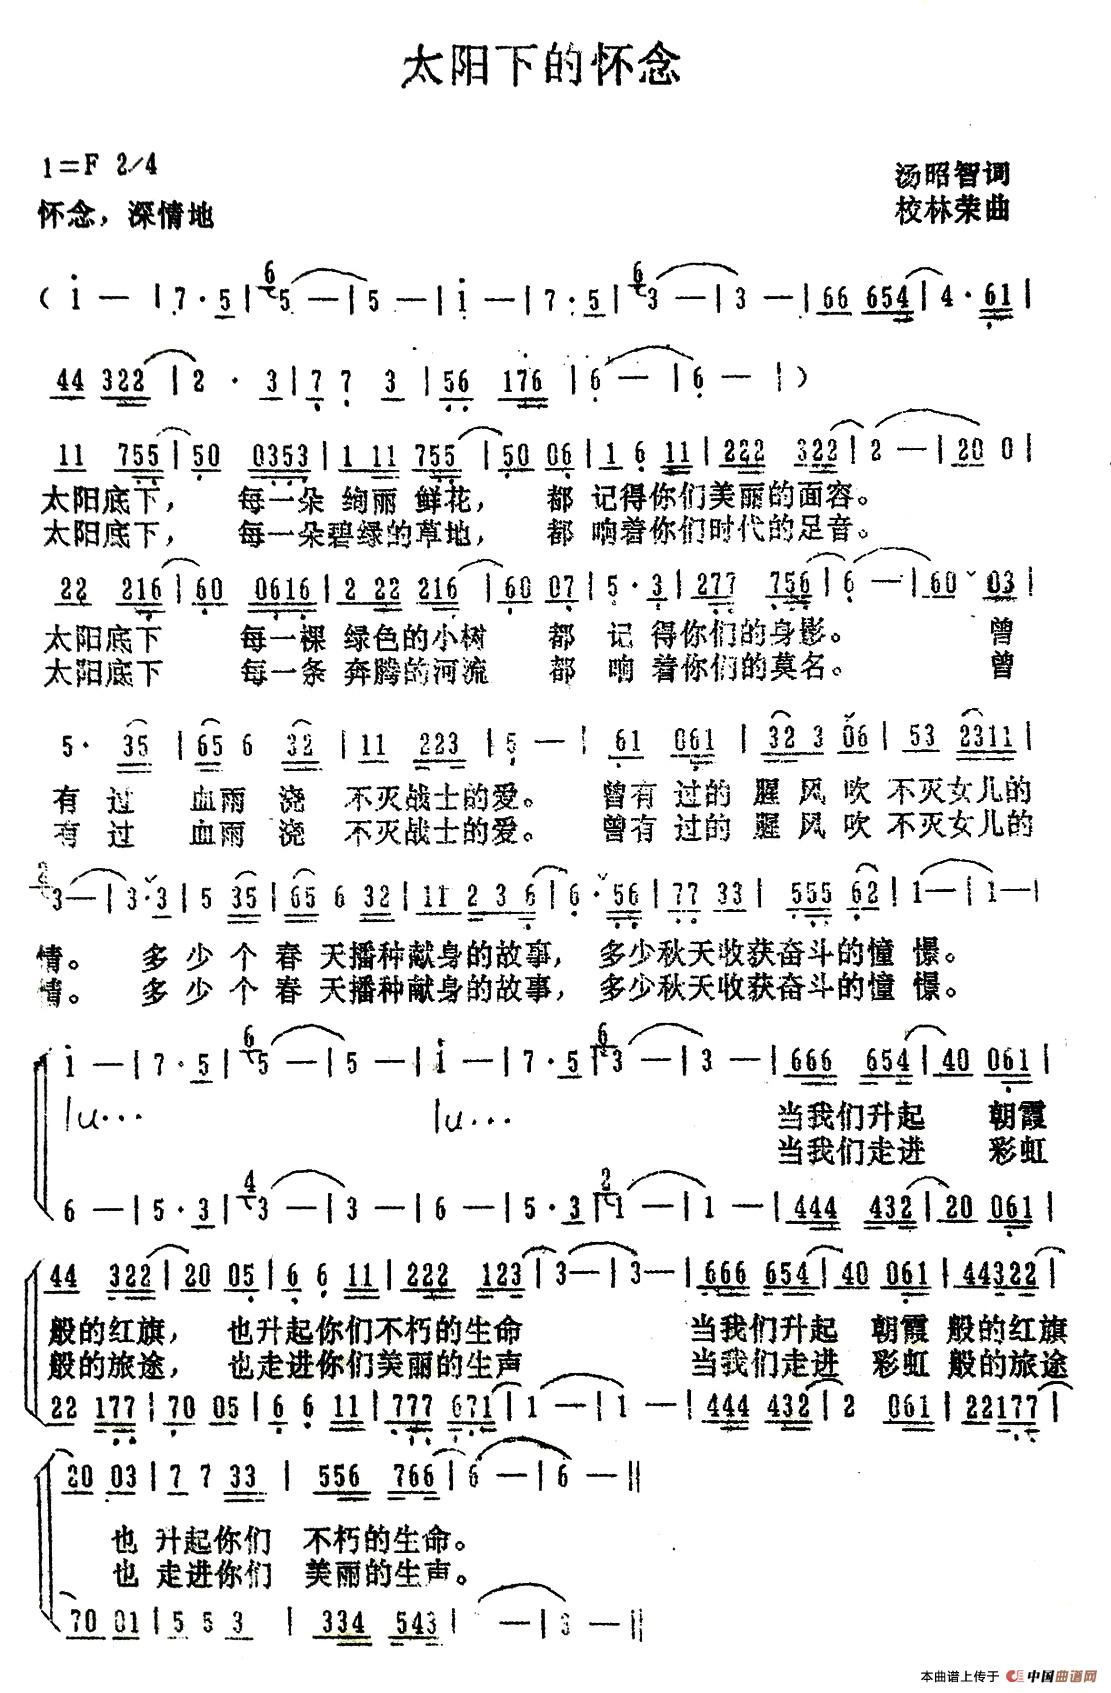 太阳下的怀念
1=F 2/4
汤昭智词
怀念，深情地
校林荣曲
( i — | 7 · 5 | 5 — | 5 — | i — | 7 · 5 | 3 — | 3 — | 66 654 | 4 · 61 |
44 322 | 2 · 3 | 7 7 3 | 56 176 | 6 — | 6 — | )
11 755 | 50 0353 | 1 11 755 | 50 06 | 1 6 11 | 222 322 | 2 — | 20 0 |
太阳底下， 每一朵 绚丽 鲜花， 都 记得你们美丽的面容。
太阳底下， 每一朵碧绿的草地， 都 响着你们时代的足音。
22 216 | 60 0616 | 2 22 216 | 60 07 | 5 · 3 | 277 756 | 6 — | 60 ˇ 03 |
太阳底下 每一棵 绿色的小树 都 记 得你们的身影。 曾
太阳底下 每一条 奔腾的河流 都 响 着你们的莫名。 曾
5 · 35 | 65 6 32 | 11 223 | 5 — | 61 061 | 32 3 ˇ 06 | 53 2311 |
有 过 血雨 浇 不灭战士的爱。 曾有 过的 腥 风 吹 不灭女儿的
有 过 血雨 浇 不灭战士的爱。 曾有 过的 腥 风 吹 不灭女儿的
3 — | 3 · ˇ 3 | 5 35 | 65 6 32 | 11 2 3 6 | 6 · ˇ 56 | 77 33 | 555 62 | 1 — | 1 — |
情。 多 少 个 春 天播种献身的故事， 多少秋天收获奋斗的憧 憬。
情。 多 少 个 春 天播种献身的故事， 多少秋天收获奋斗的憧 憬。
i — | 7 · 5 | 5 — | 5 — | i — | 7 · 5 | 3 — | 3 — | 666 654 | 40 061 |
lu··· lu··· 当我们升起 朝霞
当我们走进 彩虹
6 — | 5 · 3 | 3 — | 3 — | 6 — | 5 · 3 | 1 — | 1 — | 444 432 | 20 061 |
44 322 | 20 05 | 6 6 11 | 222 123 | 3 — | 3 — | 666 654 | 40 061 | 44322 |
般的红旗， 也升起你们不朽的生命 当我们升起 朝霞 般的红旗
般的旅途， 也走进你们美丽的生声 当我们走进 彩虹 般的旅途
22 177 | 70 05 | 6 6 11 | 777 671 | 1 — | 1 — | 444 432 | 2 061 | 22177 |
20 03 | 7 7 33 | 556 766 | 6 — | 6 — ||
也 升起你们 不朽的生命。
也 走进你们 美丽的生声。
70 01 | 5 5 3 | 334 543 | — | 3 — ||
本曲谱上传于 中国曲谱网